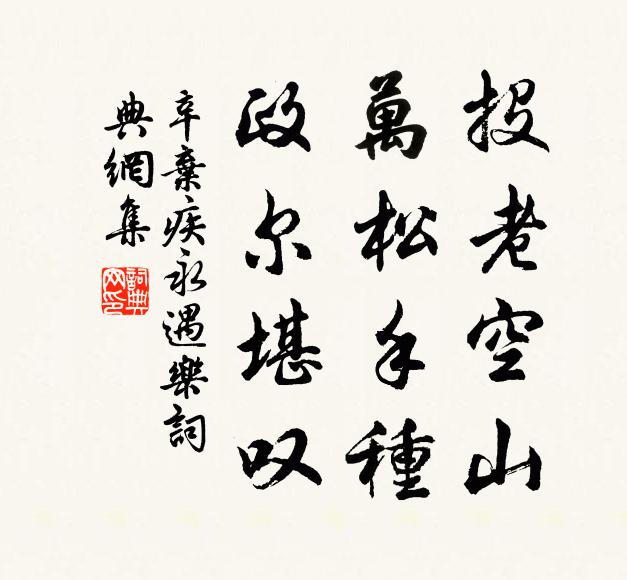 投老空山
萬松手種
政尔堪叹
辛棄疾永遇樂詞
典網集
詞典
网印